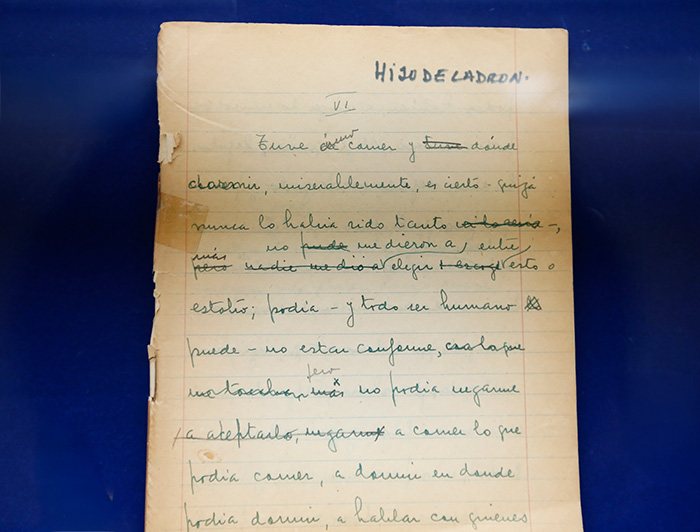 HIJO DE LADRON.
VI
Tuve que comer y tuve dónde
dormir, miserablemente, es cierto - quizá
nunca lo había sido tanto -,
más no pude me dieron a entre
pero nadie me dió a elegir esto o
estotro; podía - y todo ser humano
puede - no estar conforme, con lo que
pero
me tocaba, más no podía negarme
a aceptarlo, negarme a comer lo que
podía comer, a dormir en donde
podía dormir, a hablar con quienes